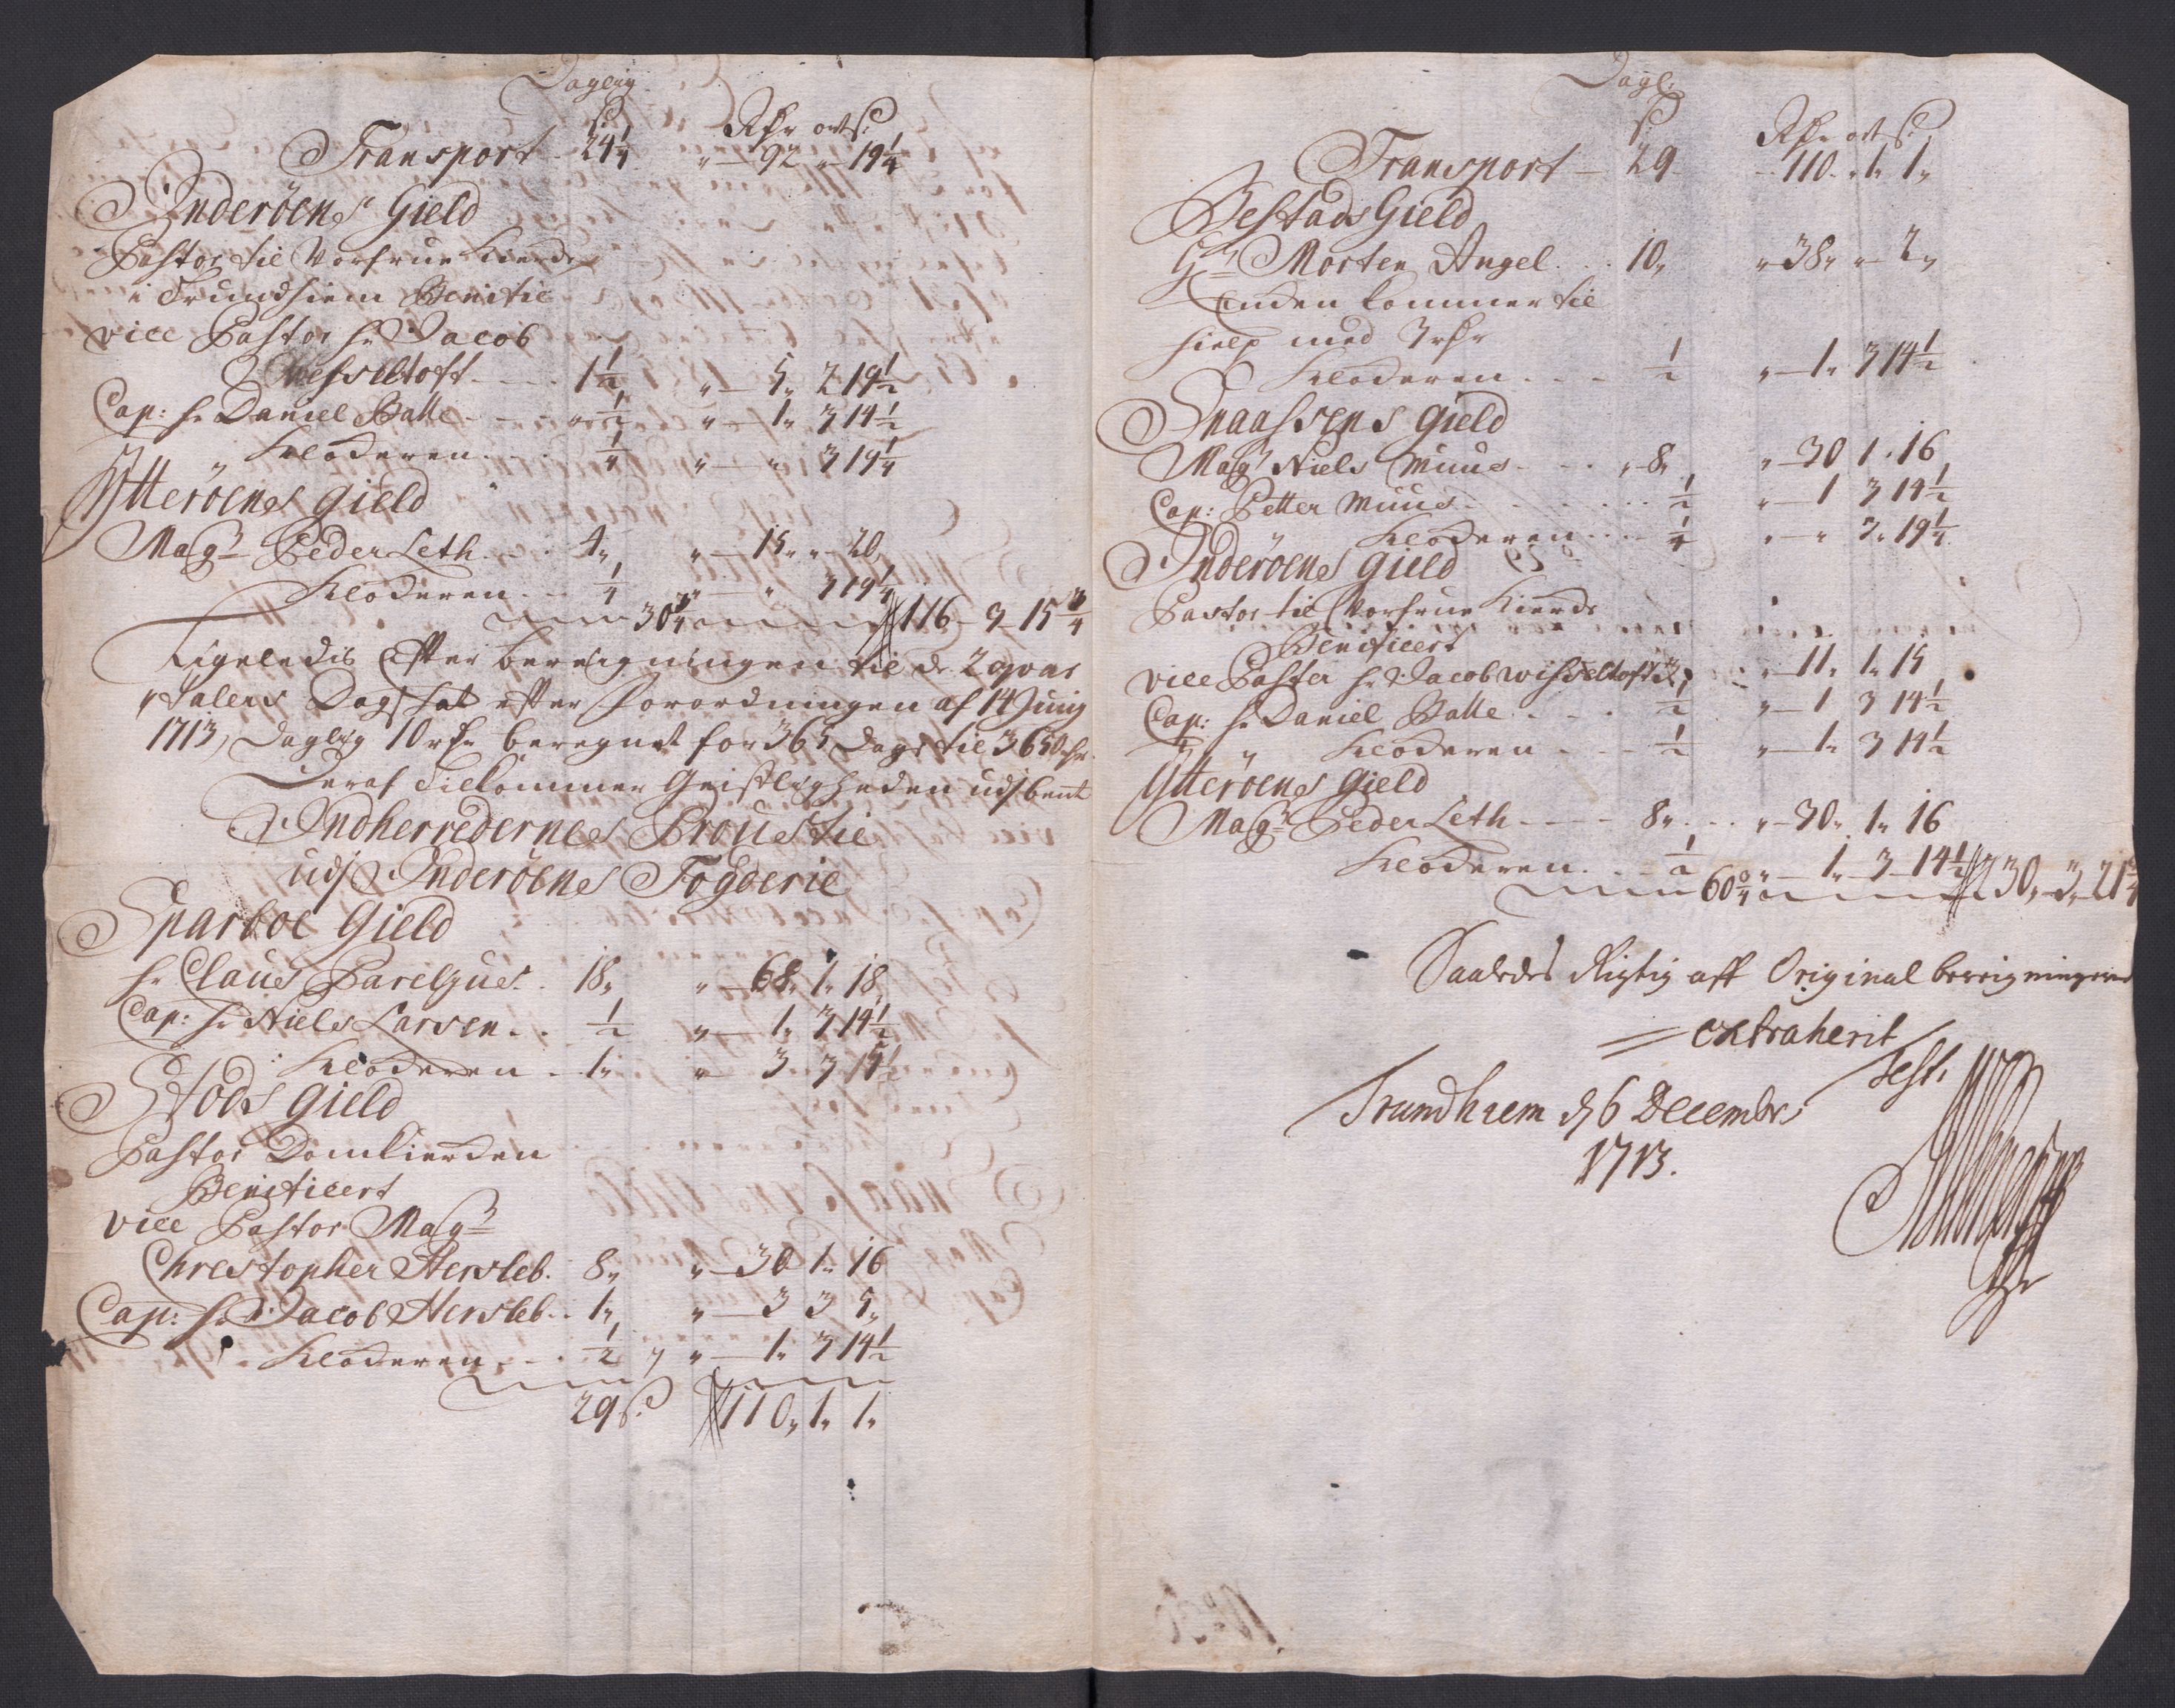 Daglig
s. Rdr ort s.
Transport 24 1/4 " 92 " 19 1/4
Inderöens Gield
Pastor til Vorfrue Kierche
i Trundhiem Benificie
vice Pastor hr Jacob
Wesseltoft 1 1/2 " 5 " 2 19 1/2
Cap: hr Daniel Balle " 1/2 " 1 " 3 14 1/2
Klocheren 1/4 " " 3 19 1/4
Ytteröens gield
Magr Peder Leth 4 " " 15 " " 20
Klocheren 1/4 " " 3 19 1/4
30 3/4 116 - 3 - 15 3/4
Ligeledis Efter bereigningen til de 2 qvar
talers Dagskat efter forordningen af 14 Junij
1713, Daglig 10 rdr beregnet for 365 Dage til 3650 rdr.
Deraf tilkommer Geistligheden udj bemte
Indherredernes Proustie
udj Inderöens Fogderie
Sparboe Gield
hr Claus Parelius 18 " " 68 " 1 " 18
Cap: hr Niels Larsen 1/2 " 1 " 3 14 1/2
Klocheren 1 " " 3 3 5
Stods gield
Pastor Domkierchen
Benificert
vice Pastor Magr
Christopher Hersleb 8 " " 30 1 " 16
Cap: hr Jacob Hersleb 1 " " 3 3 5 "
Klocheren 1/2 " 1 " 3 14 1/2
29 s. 110 " 1 " 1 "
Dagl:
s. Rdr ort s.
Transport 29 110 " 1 " 1 "
Bestads Gield
Hr Morten Angel 10 " " 38 " " 2 "
Enden kommer til
hielp med 3 rdr
Klocheren 1/2 " 1 " 3 14 1/2
Snaasens gield
Magr Niels Muus " 8 " " 30 1 " 16
Cap: Petter Muus 1/2 " 1 3 14 1/2
Klocheren 1/4 " " 3 " 19 1/4
Inderöens gield
Pastor til Vorfrue Kierche
Benificert
vice Paster hr Jacob Wisseltoft 3 " " 11 " 1 " 15
Cap: hr Daniel Balle 1/2 " 1 3 14 1/2
Klocheren 1/2 " 1 " 3 14 1/2
Ytteröens gield
Magr Peder Leth 8 " " 30 " 1 " 16
Klocheren 1/2 " 1 " 3 14 1/2
60 230 " 3 " 21
Saaledes Rigtig aff Original bereigningerne
extraherit
Test:
Trundhiem d 6 Decembr
1713.